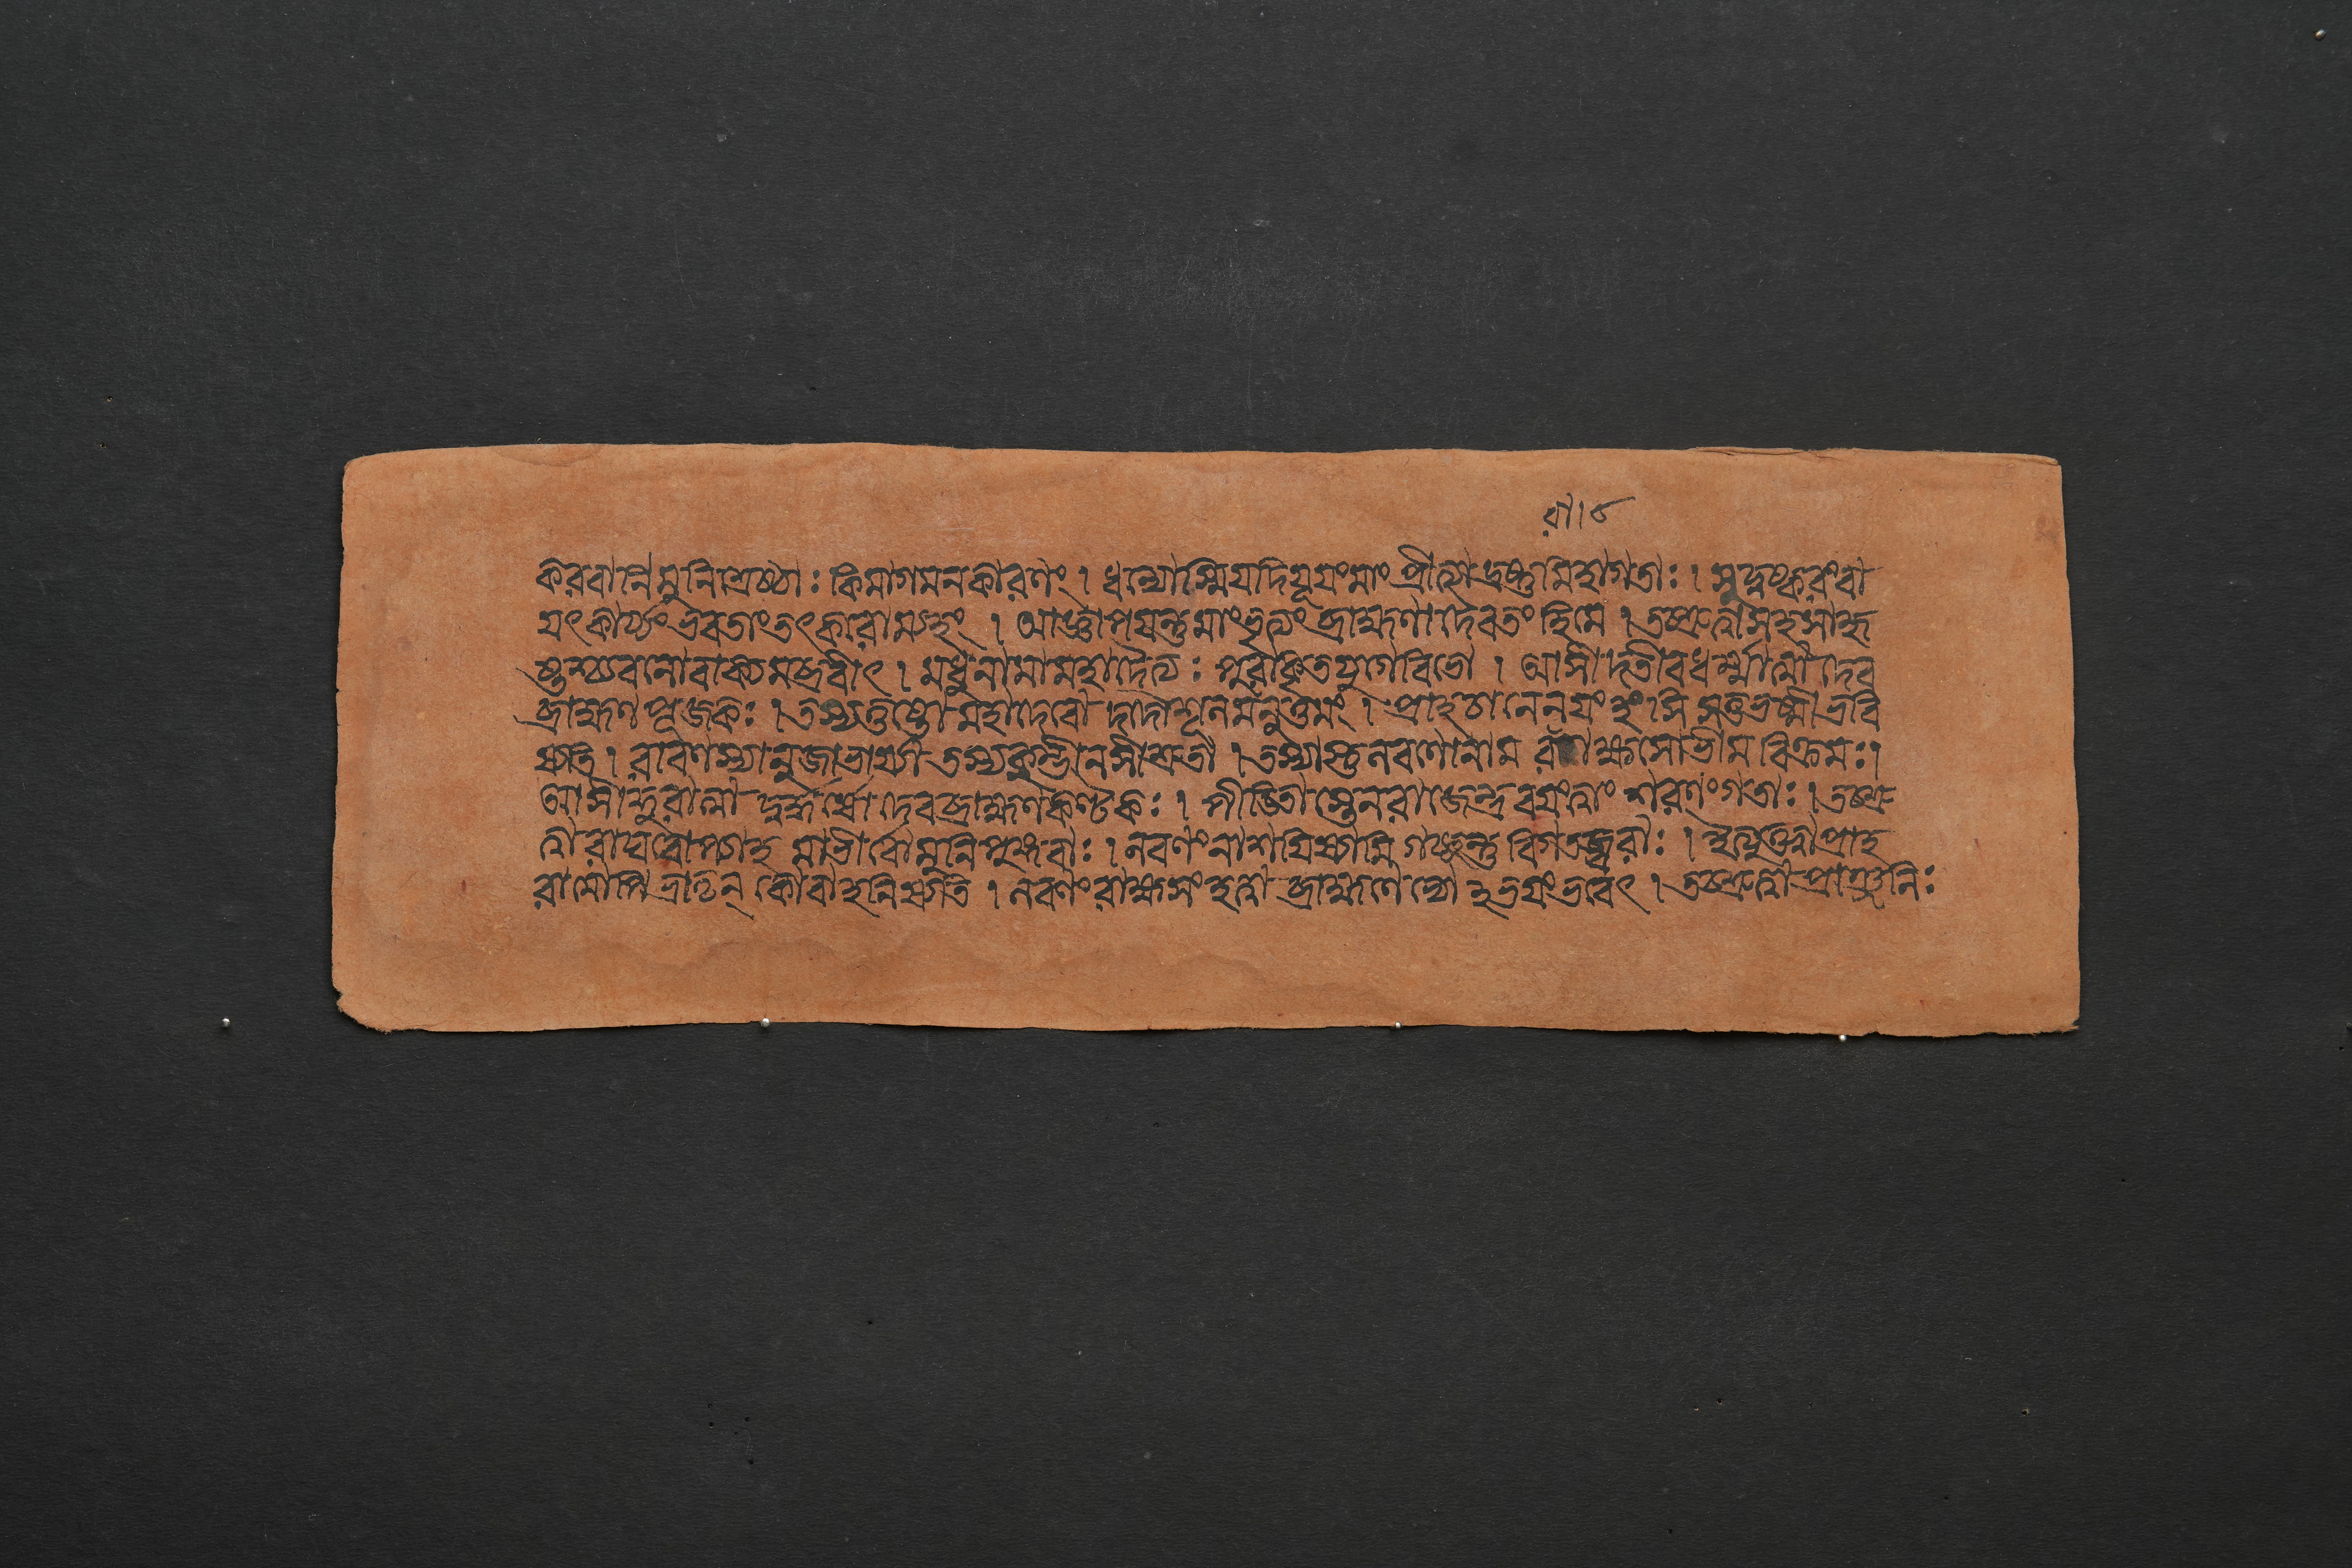 রা।৮
করবানিমুনিশ্রেষ্ঠাঃ কিমাগমনকারণং । ধন্যোস্মিযদিযূয়ংমাং প্রীত্যাদ্রষ্টুমিহাগতাঃ । সুদুষ্করংবা
যৎকার্য্যংভবতাংতৎকরোম্যহং । আজ্ঞাপয়ন্তুমাংভৃত্যং ব্রাহ্মণাদৈবতং হিমে । তচ্ছ্রুত্বাসহসাহৃ
ষ্টশ্চ্যবনোবাক্যমব্রবীৎ । মধুনামামহাদৈত্যঃ পুরাকৃতযুগেবিভো । আসীদতীবধর্ম্মাত্মা দেব
ব্রাহ্মণপূজকঃ । তস্যতুষ্টো মহাদেবো দদৌশূলমনুত্তমং । প্রাহচানেনযং হংসি সতুভস্মীভবি
ষ্যতি । রাবণস্যানুজাভার্য্যা তস্যকুম্ভীনসীশ্রুতা । তস্যাস্তুলবণোনাম রাক্ষসোভীমবিক্রমঃ ।
আসীদ্দুরাত্মা দুর্দ্ধর্ষো দেবব্রাহ্মণকণ্টকঃ । পীডিতাস্তেনরাজেন্দ্র বয়ংত্বাং শরণংগতাঃ । তচ্ছ্রু
ত্বা রাঘবোপ্যাহ মাভীর্বো মুনিপুঙ্গবাঃ । লবণংনাশয়িষ্যামি গচ্ছন্তু বিগতজ্বরাঃ । ইত্যুক্ত্বাপ্রাহ
রামোপি ভ্রাতৄন্ কোবাহনিষ্যতি । লবণং রাক্ষসংহত্বা ব্রাহ্মণেভ্যোঽভয়ংভবেৎ । তচ্ছ্রুত্বা প্রাঞ্জলিঃ